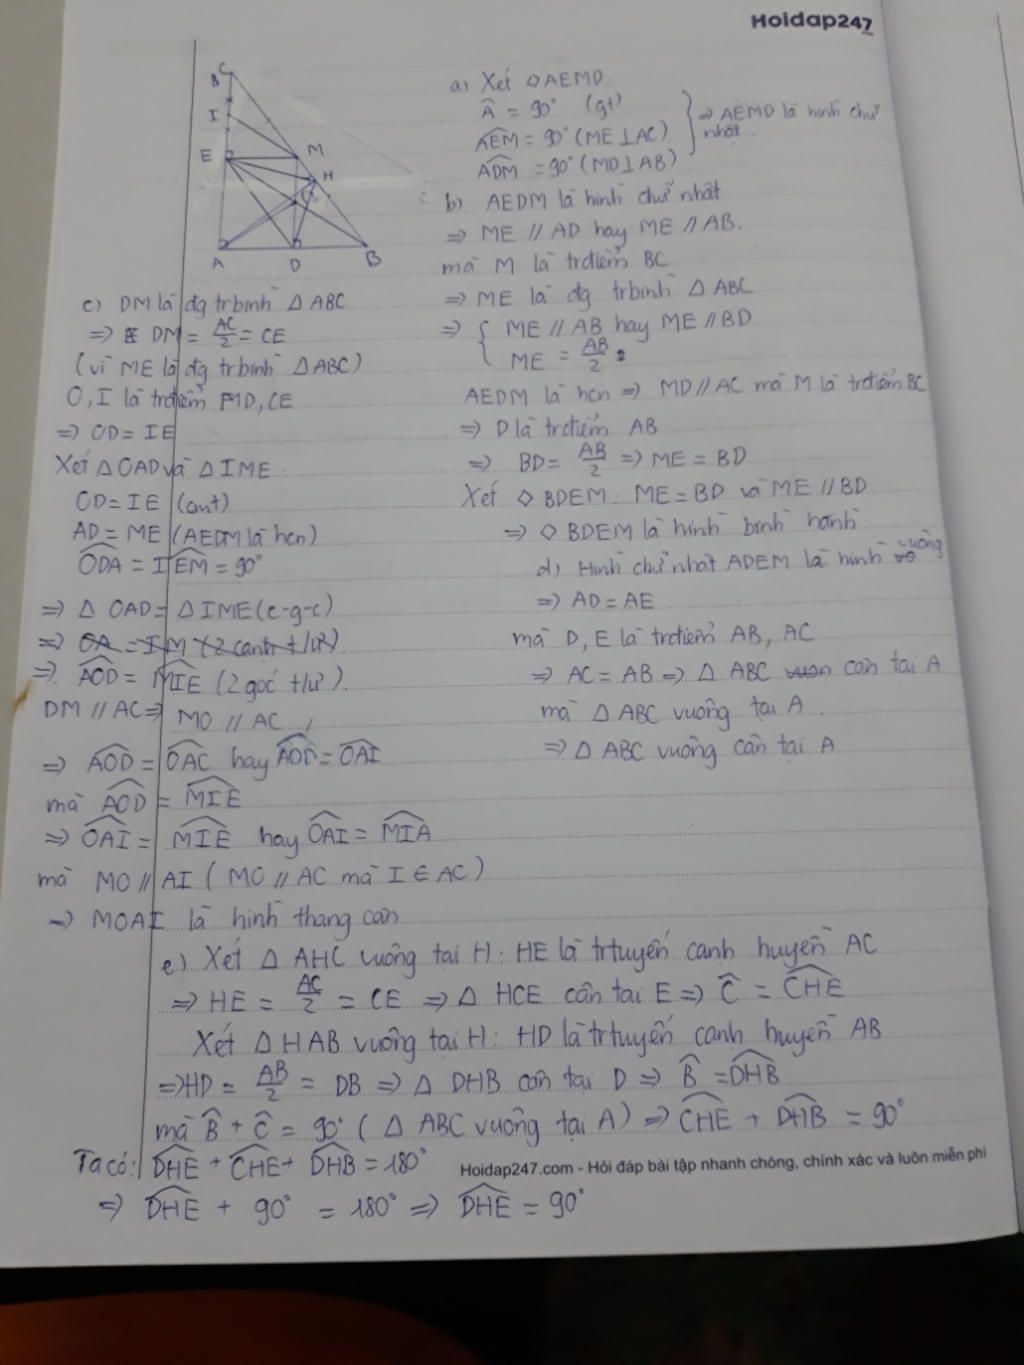 Hoidap247
C
I
E
M
H
A
D
B
a) Xét ◇AEMD
Â = 90° (gt)
AEM = 90° (ME⊥AC)
ADM = 90° (MD⊥AB)
⇒ AEMD là hình chữ nhật
b) AEDM là hình chữ nhật
⇒ ME // AD hay ME // AB.
mà M là trđiểm BC
⇒ ME là đg trbình △ ABC
⇒ { ME // AB hay ME // BD
ME = AB/2
AEDM là hcn ⇒ MD // AC mà M là trđiểm BC
⇒ D là trđiểm AB
⇒ BD = AB/2 ⇒ ME = BD
Xét ◇ BDEM: ME = BD và ME // BD
⇒ ◇ BDEM là hình bình hành
c) DM là đg trbình △ ABC
⇒ DM = AC/2 = CE
(vì ME là đg trbình △ ABC)
O, I là trđiểm MD, CE
⇒ OD = IE
Xét △ OAD và △ IME
OD = IE (cmt)
AD = ME (AEDM là hcn)
ODA = IEM = 90°
⇒ △ OAD = △ IME (c-g-c)
⇒ OA = IM (2 cạnh t/ư)
⇒ AOD = MIE (2 góc t/ư)
DM // AC ⇒ MO // AC
⇒ AOD = OAC hay AOD = OAI
mà AOD = MIE
⇒ OAI = MIE hay OAI = MIA
mà MO // AI (MO // AC mà I ∈ AC)
⇒ MOAI là hình thang cân
d) Hình chữ nhật ADEM là hình vuông
⇒ AD = AE
mà D, E là trđiểm AB, AC
⇒ AC = AB ⇒ △ ABC cân tại A
mà △ ABC vuông tại A
⇒ △ ABC vuông cân tại A
e) Xét △ AHC vuông tại H: HE là trtuyến cạnh huyền AC
⇒ HE = AC/2 = CE ⇒ △ HCE cân tại E ⇒ Ĉ = CHE
Xét △ HAB vuông tại H: HD là trtuyến cạnh huyền AB
⇒ HD = AB/2 = DB ⇒ △ DHB cân tại D ⇒ B̂ = DHB
mà B̂ + Ĉ = 90° (△ ABC vuông tại A) ⇒ CHE + DHB = 90°
Ta có: DHE + CHE + DHB = 180°
Hoidap247.com - Hỏi đáp bài tập nhanh chóng, chính xác và luôn miễn phí
⇒ DHE + 90° = 180° ⇒ DHE = 90°